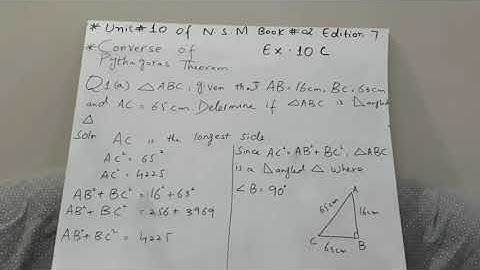 * Unit # 10 of N.S.M Book # 02 Edition 7
* Converse of Pythagoras Theorem
Ex. 10 C
Q1(a) △ABC, given that AB=16cm, BC=63cm
and AC = 65cm. Determine if △ABC is ⊿angled
△
Soln AC is the longest side.
AC² = 65²
AC² = 4225
AB² + BC² = 16² + 63²
AB² + BC² = 256 + 3969
AB² + BC² = 4225
Since AC² = AB² + BC², △ABC
is a ⊿angled △ where
∠B = 90°
A
65cm
16cm
C
63cm
B